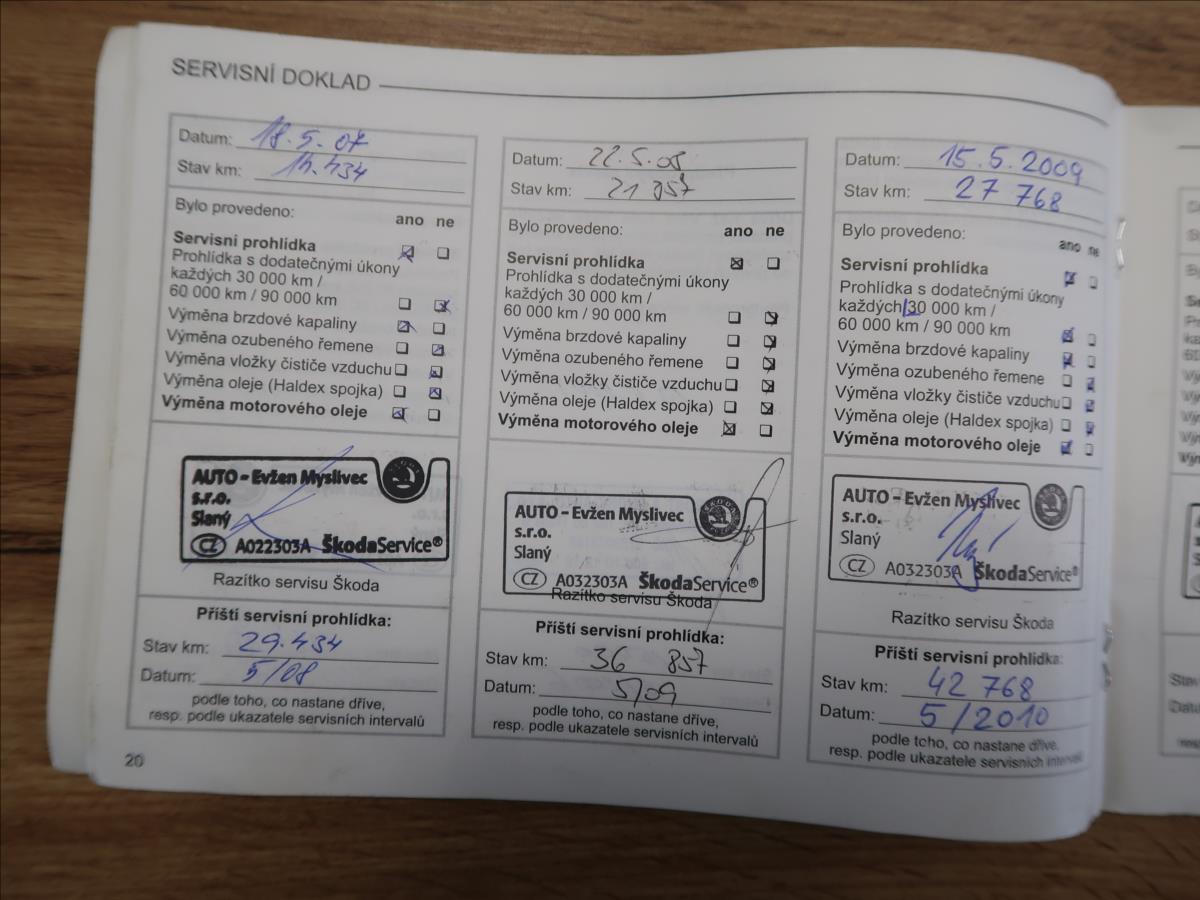 SERVISNÍ DOKLAD
Datum: 18.5.07
Stav km: 14.434
Bylo provedeno:
ano ne
Servisní prohlídka
Prohlídka s dodatečnými úkony
každých 30 000 km /
60 000 km / 90 000 km
Výměna brzdové kapaliny
Výměna ozubeného řemene
Výměna vložky čističe vzduchu
Výměna oleje (Haldex spojka)
Výměna motorového oleje
AUTO – Evžen Myslivec
s.r.o.
Slaný
CZ A022303A ŠkodaService®
Razítko servisu Škoda
Příští servisní prohlídka:
Stav km: 29.434
Datum: 5/08
podle toho, co nastane dříve,
resp. podle ukazatele servisních intervalů
20
Datum: 22.5.08
Stav km: 21 857
Bylo provedeno:
ano ne
Servisní prohlídka
Prohlídka s dodatečnými úkony
každých 30 000 km /
60 000 km / 90 000 km
Výměna brzdové kapaliny
Výměna ozubeného řemene
Výměna vložky čističe vzduchu
Výměna oleje (Haldex spojka)
Výměna motorového oleje
AUTO – Evžen Myslivec
s.r.o.
Slaný
CZ A032303A ŠkodaService®
Razítko servisu Škoda
Příští servisní prohlídka:
Stav km: 36 857
Datum: 5/09
podle toho, co nastane dříve,
resp. podle ukazatele servisních intervalů
Datum: 15.5.2009
Stav km: 27 768
Bylo provedeno:
ano ne
Servisní prohlídka
Prohlídka s dodatečnými úkony
každých 30 000 km /
60 000 km / 90 000 km
Výměna brzdové kapaliny
Výměna ozubeného řemene
Výměna vložky čističe vzduchu
Výměna oleje (Haldex spojka)
Výměna motorového oleje
AUTO – Evžen Myslivec
s.r.o.
Slaný
CZ A032303A ŠkodaService®
Razítko servisu Škoda
Příští servisní prohlídka:
Stav km: 42 768
Datum: 5/2010
podle toho, co nastane dříve,
resp. podle ukazatele servisních intervalů